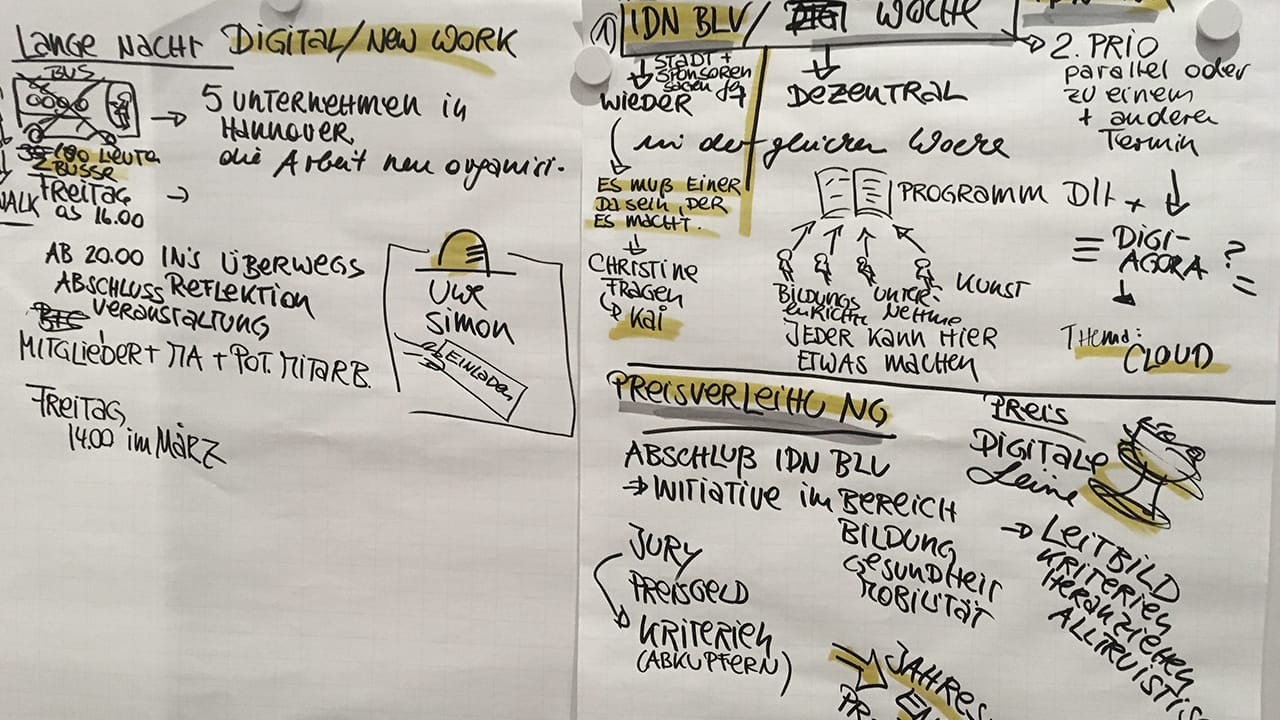 LANGE NACHT DIGITAL/NEW WORK
BUS
→ 5 UNTERNEHMEN in
HANNOVER,
die Arbeit neu organisi.
100 LEUTE
2 BUSSE
FREITAG →
WALK as 16.00
AB 20.00 IN'S ÜBERWEGS
ABSCHLUSS REFLEKTION
VERANSTALTUNG
MITGLIEDER + MA + POT. MITARB.
FREITAG,
14.00 im MÄRZ
UWE
SIMON
EINLADEN
1) IDN BLV / WOCHE
STADT +
SPONSOREN
sagen ja
WIEDER
DEZENTRAL
in der gleichen Woche
ES MUß EINER
DA SEIN, DER
ES MACHT.
CHRISTINE
FRAGEN
KAI
PROGRAMM DIH +
BILDUNGS
UNTER-
NEHME
KUNST
JEDER KANN HIER
ETWAS MACHEN
→ 2. PRIO
parallel oder
zu einem
+ anderen
Termin
DIGI-
AGORA ?
THEMA:
CLOUD
PREISVERLEIHUNG
ABSCHLUß IDN BLV
→ INITIATIVE im BEREICH
BILDUNG
GESUNDHEIT
MOBILITÄT
JURY
PREISGELD
KRITERIEN
(ABKUPFERN)
PREIS
DIGITALE
Leine
→ LEITBILD
KRITERIEN
HERANZIEHEN
ALLTRUISTIS
→ JAHRES
EN
PR